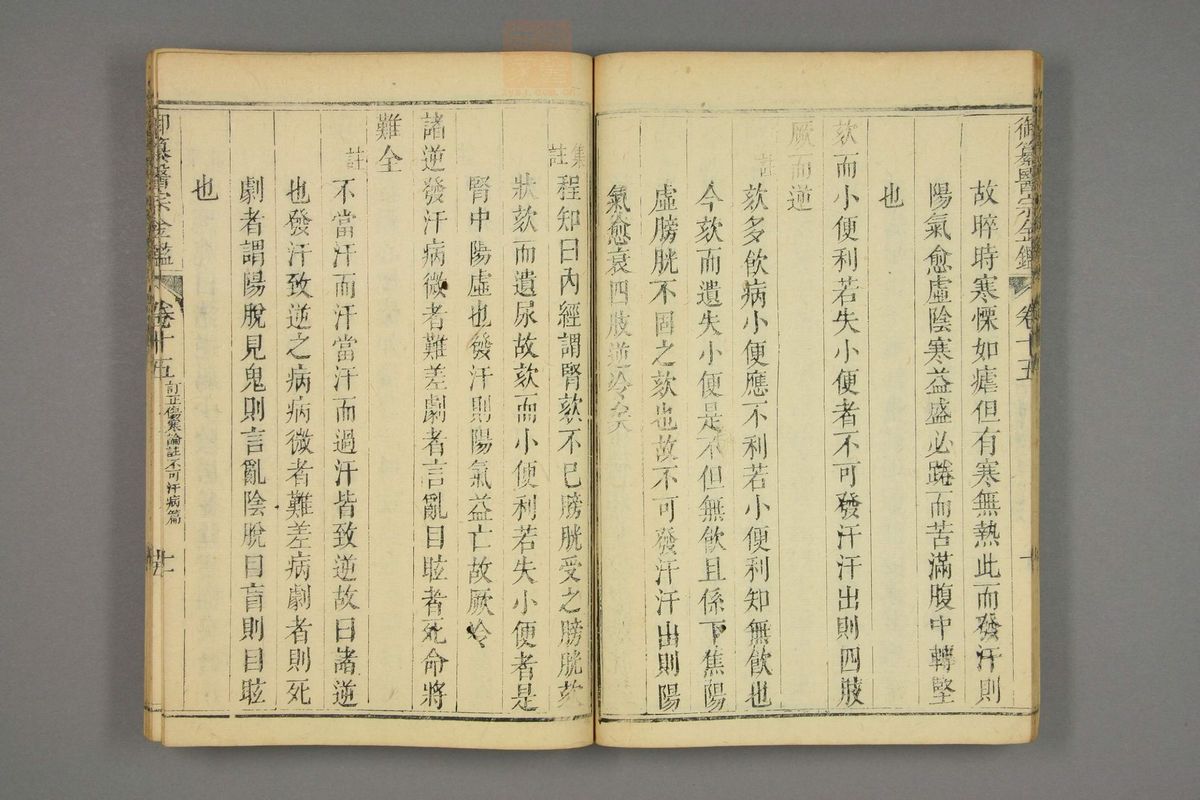 御纂醫宗金鑑 卷十五
故啐時寒慄如瘧但有寒無熱此而發汗則
陽氣愈虛陰寒益盛必踡而苦滿腹中轉堅
也
欬而小便利若失小便者不可發汗汗出則四肢
厥而逆
註
欬多飲病小便應不利若小便利知無飲也
今欬而遺失小便是不但無飲且係下焦陽
虛膀胱不固之欬也故不可發汗汗出則陽
氣愈衰四肢逆冷矣
集註
程知曰內經謂腎欬不已膀胱受之膀胱欬
狀欬而遺尿故欬而小便利若失小便者是
腎中陽虛也發汗則陽氣益亡故厥冷
諸逆發汗病微者難差劇者言亂目眩者死命將
難全
註
不當汗而汗當汗而過汗皆致逆故曰諸逆
也發汗致逆之病病微者難差病劇者則死
劇者謂陽脫見鬼則言亂陰脫目盲則目眩
也
御纂醫宗金鑑 卷十五 訂正傷寒論註不可汗病篇